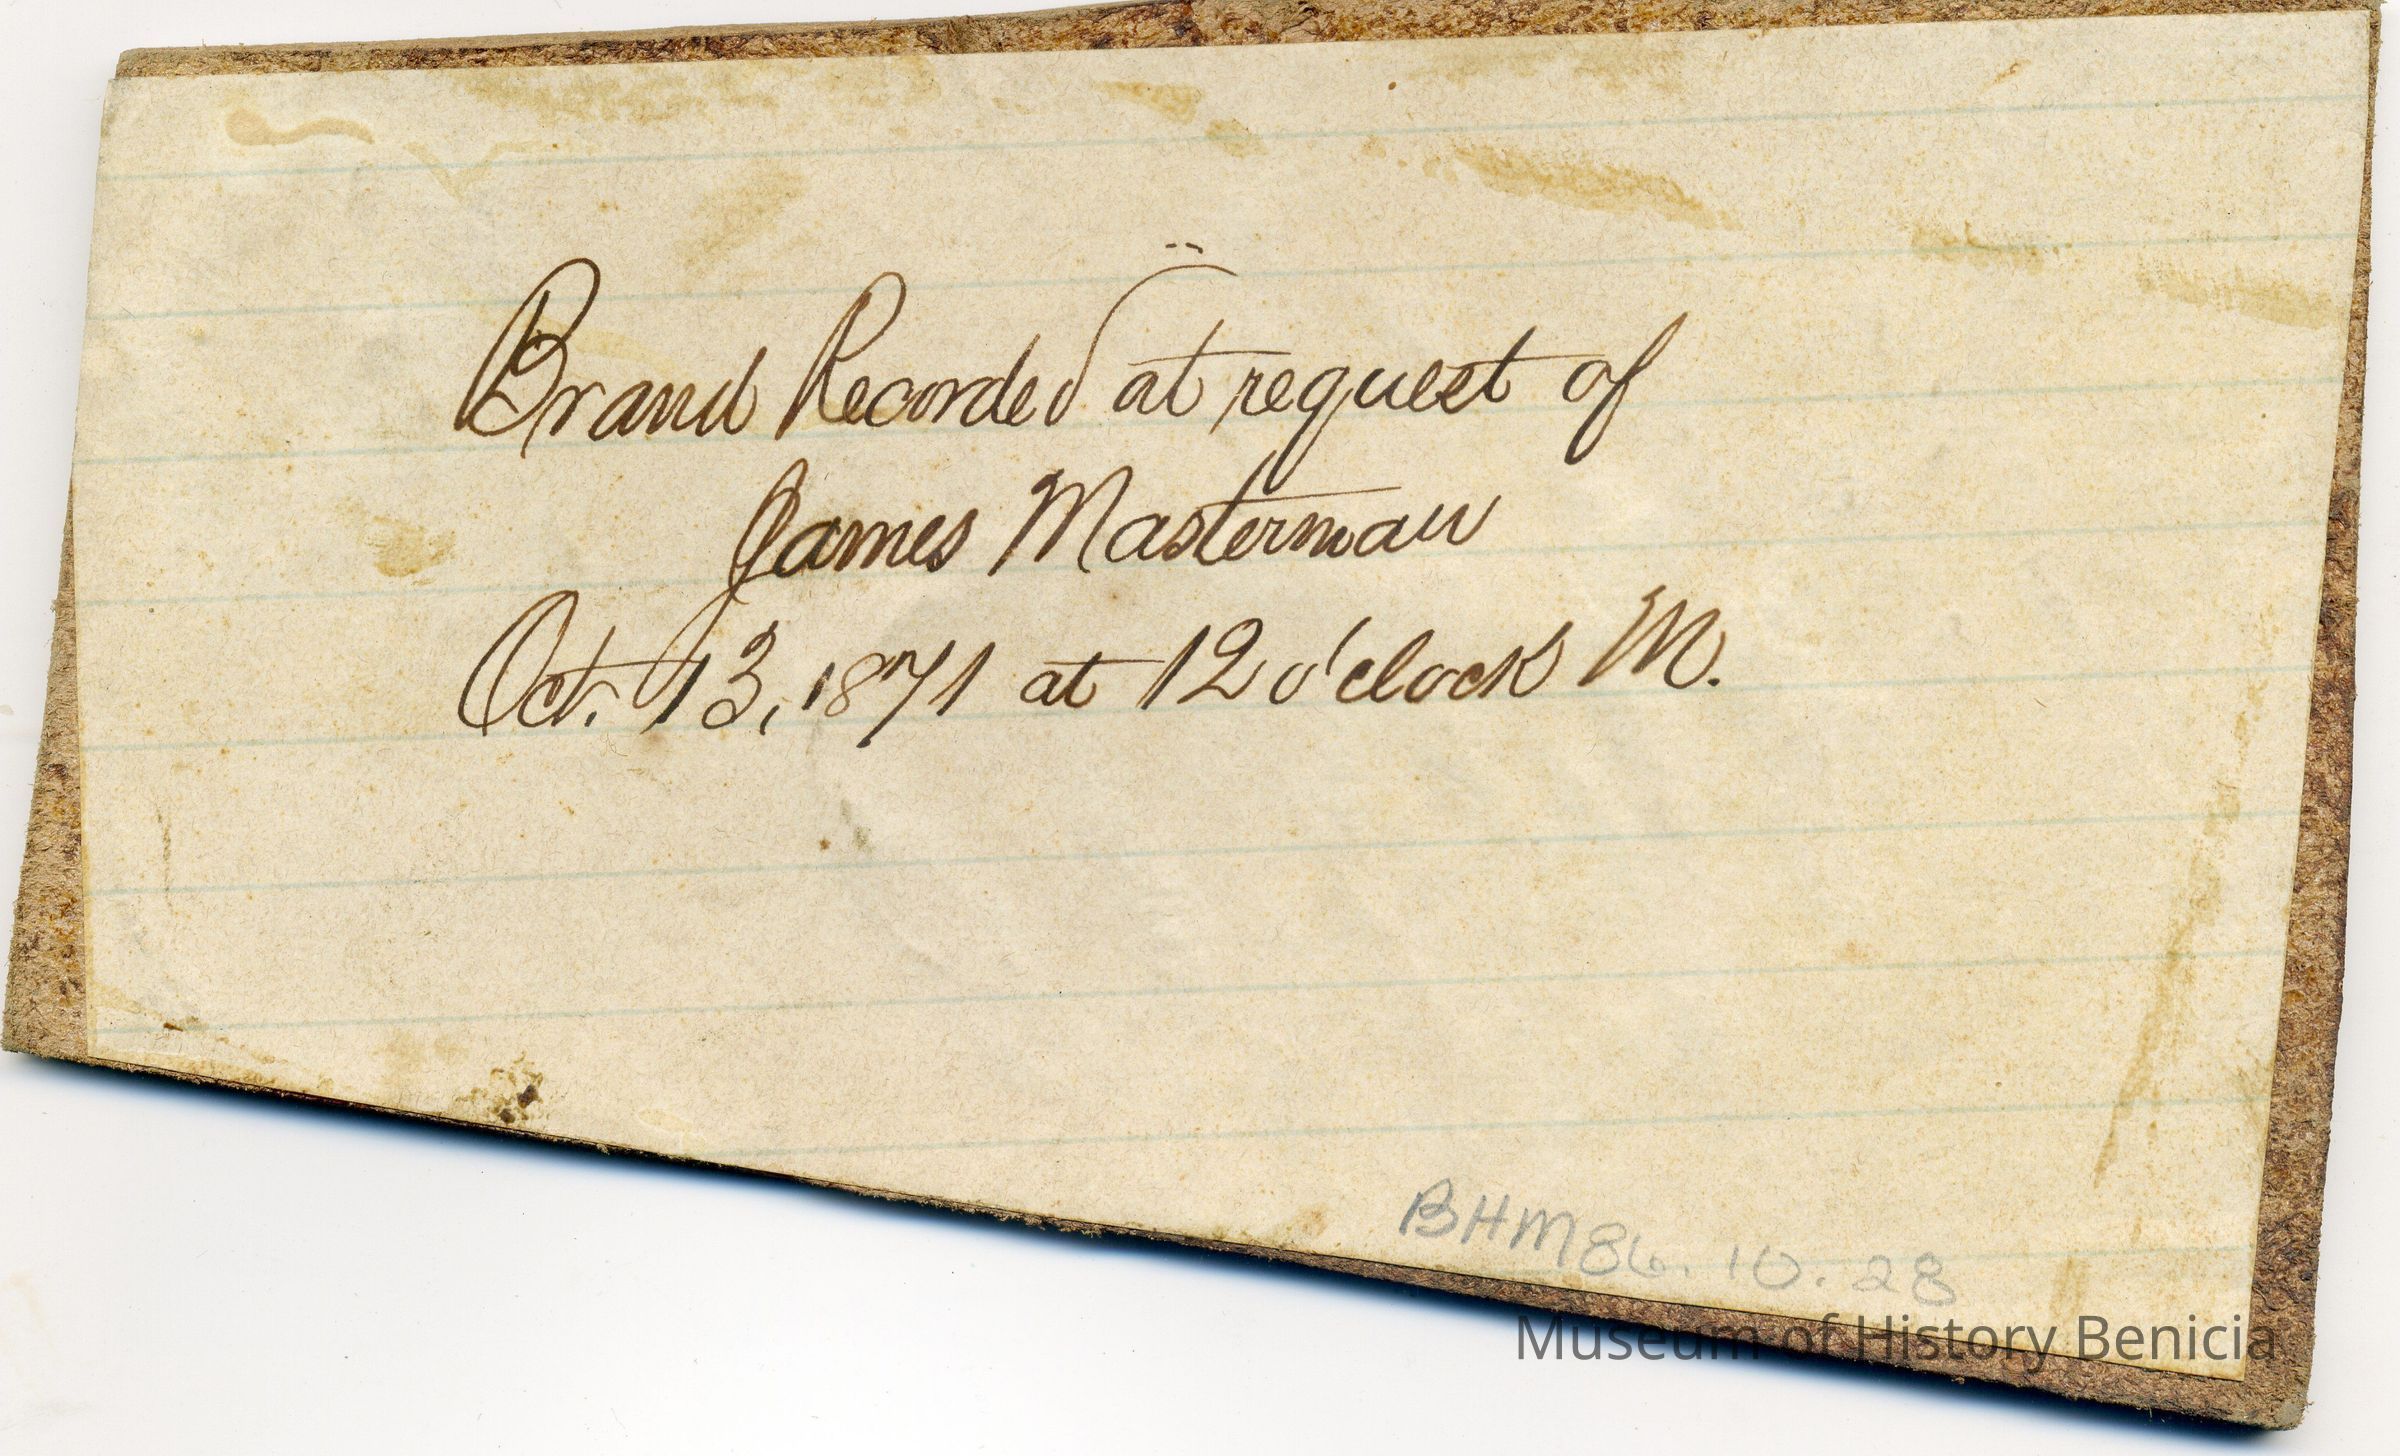 Brand Recorded at request of
James Masterman
Oct. 13, 1871 at 12 o'clock M.
BHM 86.10.28
Museum of History Benicia